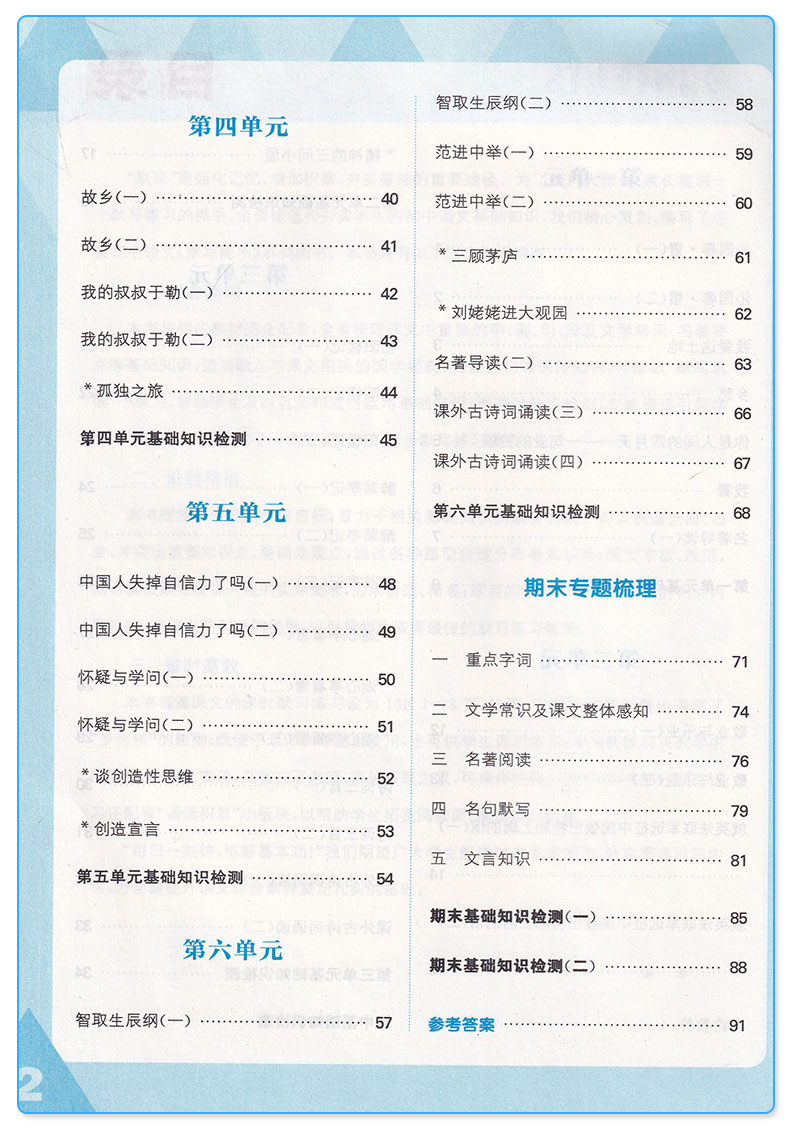 第四单元
故乡(一) 40
故乡(二) 41
我的叔叔于勒(一) 42
我的叔叔于勒(二) 43
*孤独之旅 44
第四单元基础知识检测 45
第五单元
中国人失掉自信力了吗(一) 48
中国人失掉自信力了吗(二) 49
怀疑与学问(一) 50
怀疑与学问(二) 51
*谈创造性思维 52
*创造宣言 53
第五单元基础知识检测 54
第六单元
智取生辰纲(一) 57
智取生辰纲(二) 58
范进中举(一) 59
范进中举(二) 60
*三顾茅庐 61
*刘姥姥进大观园 62
名著导读(二) 63
课外古诗词诵读(三) 66
课外古诗词诵读(四) 67
第六单元基础知识检测 68
期末专题梳理
一 重点字词 71
二 文学常识及课文整体感知 74
三 名著阅读 76
四 名句默写 79
五 文言知识 81
期末基础知识检测(一) 85
期末基础知识检测(二) 88
参考答案 91
2